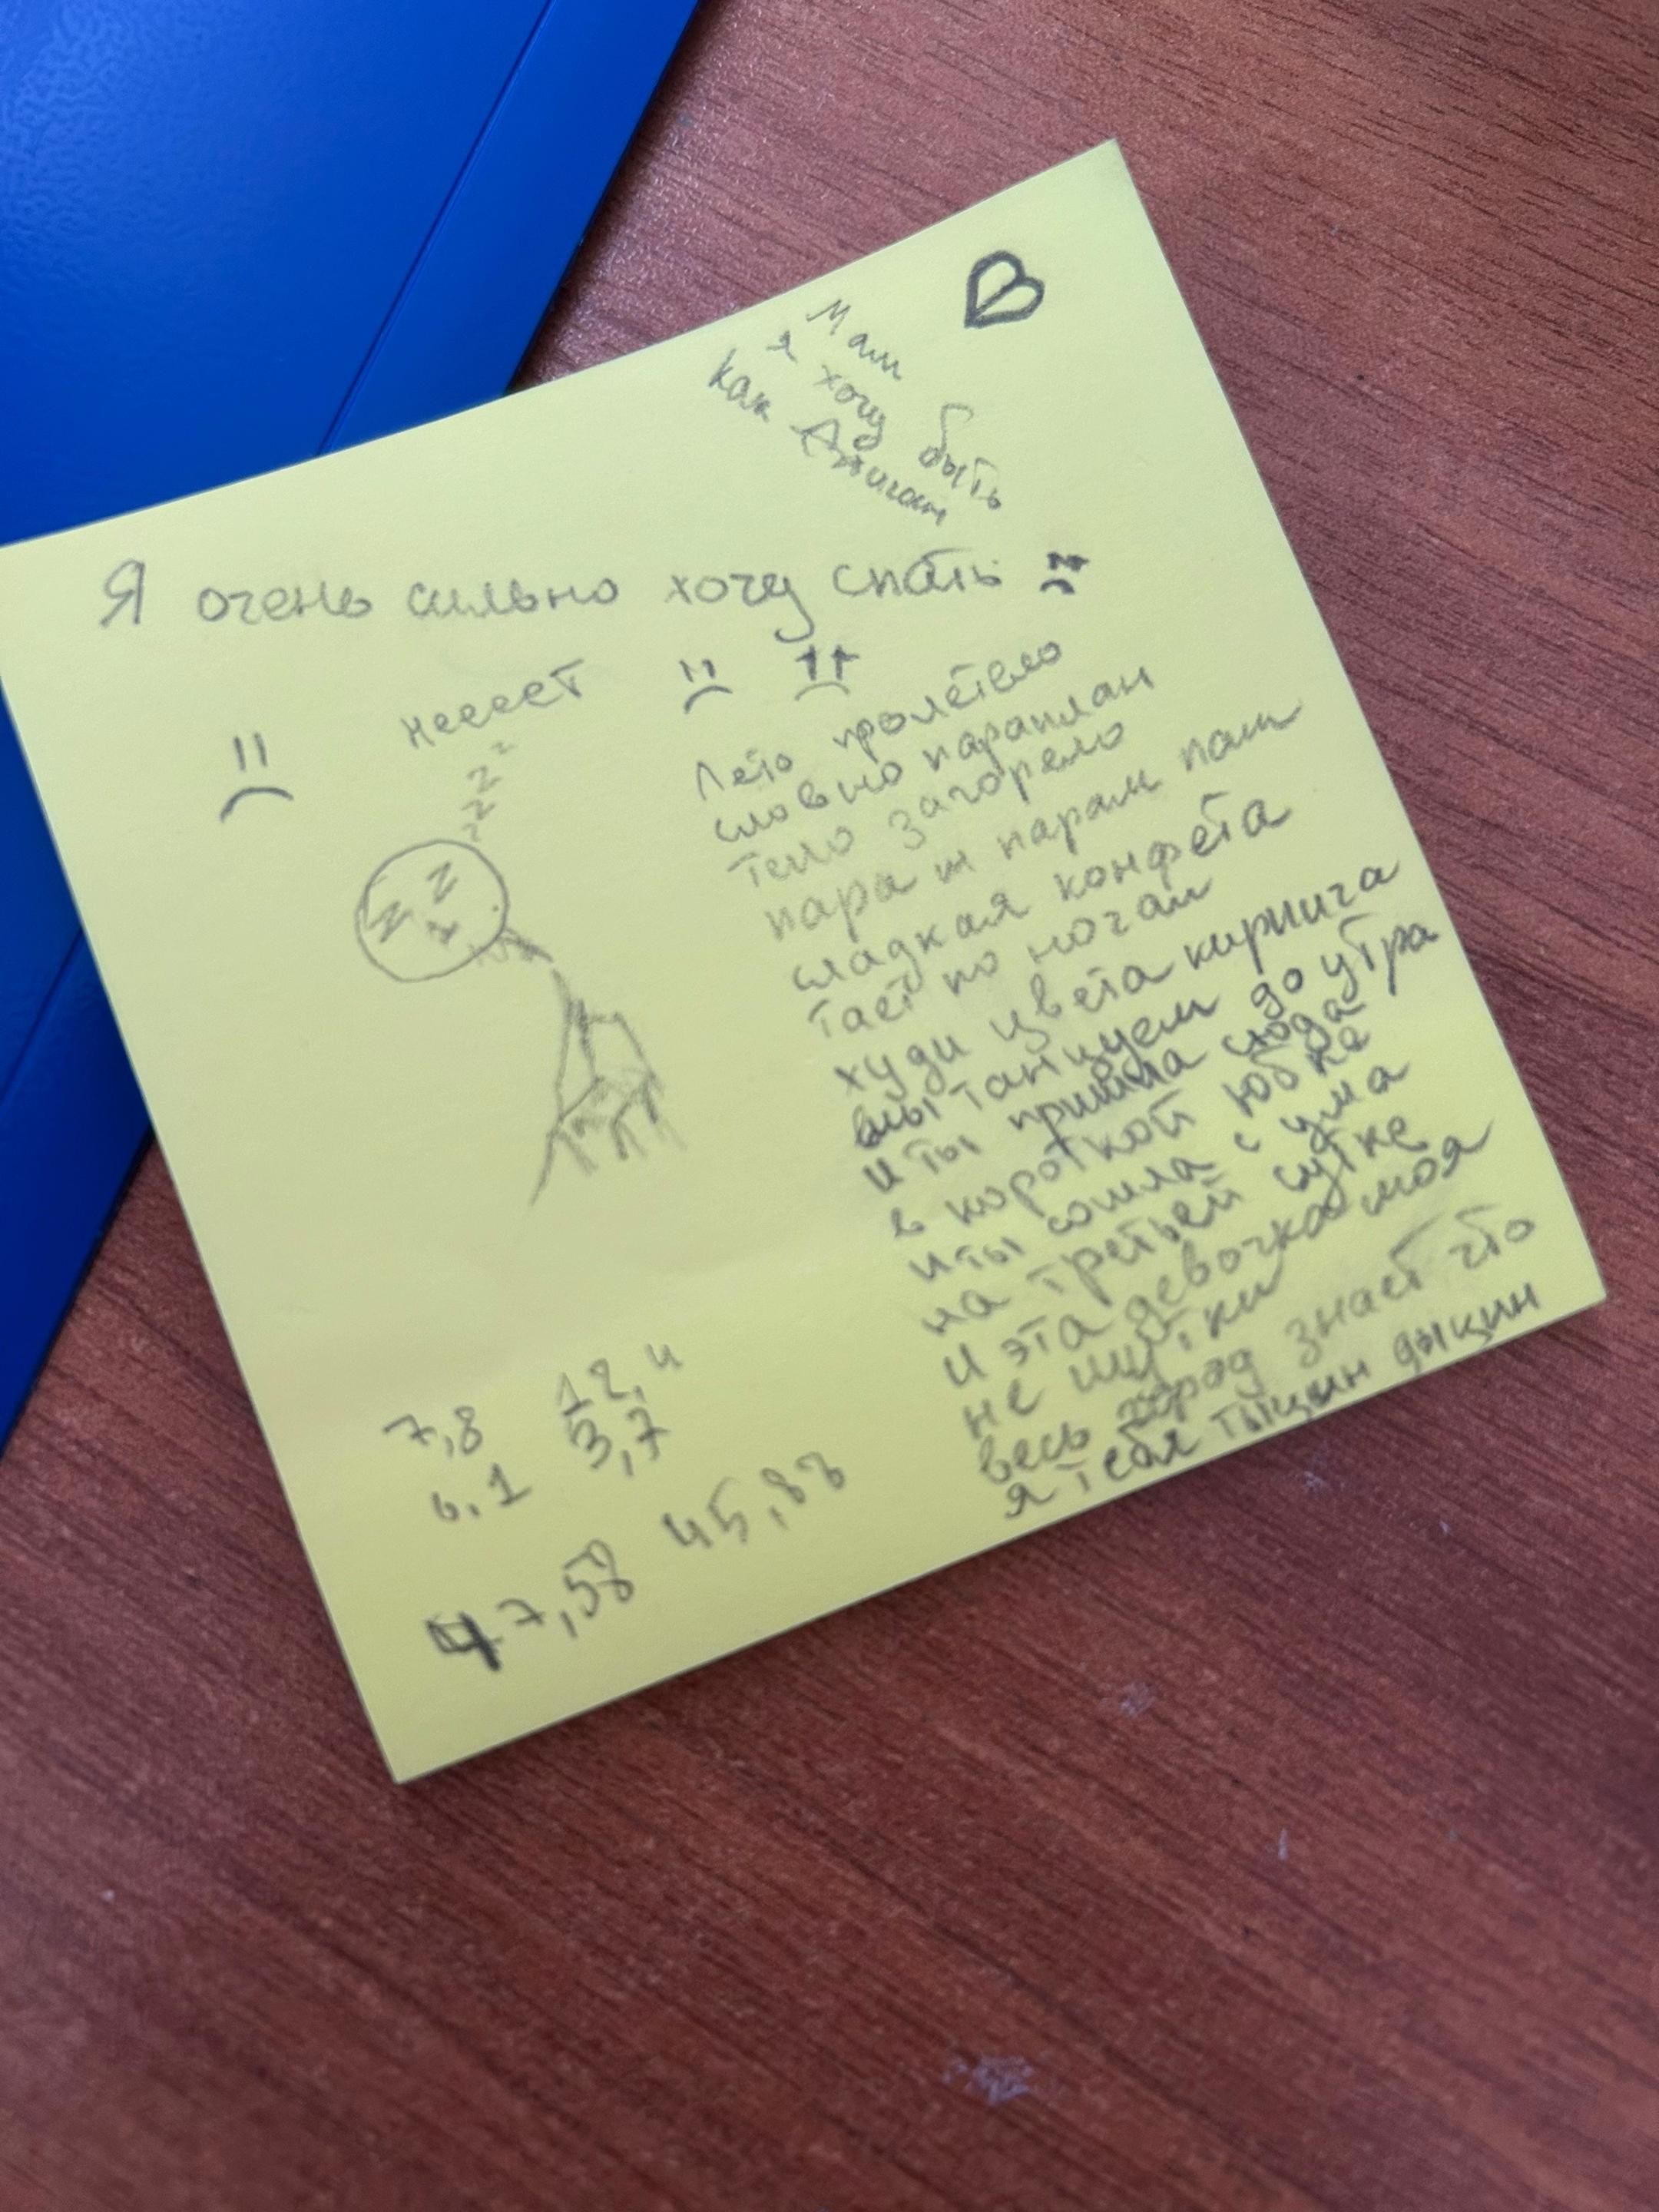 Мам
я хочу быть
как Джиган
Я очень сильно хочу спать
Неееет
z z z z
Лето пролетело
словно параплан
тело загорело
парам парам пам
сладкая конфета
тает по ночам
худи цвета кирпича
мы танцуем до утра
и ты пришла сюда
в короткой юбке
и ты сошла с ума
на третьей сутке
и эта девочка моя
не шутки
весь город знает что
я тебя тыцын дыцын
7,8 12,4
6.1 3,7
47,58 45,82